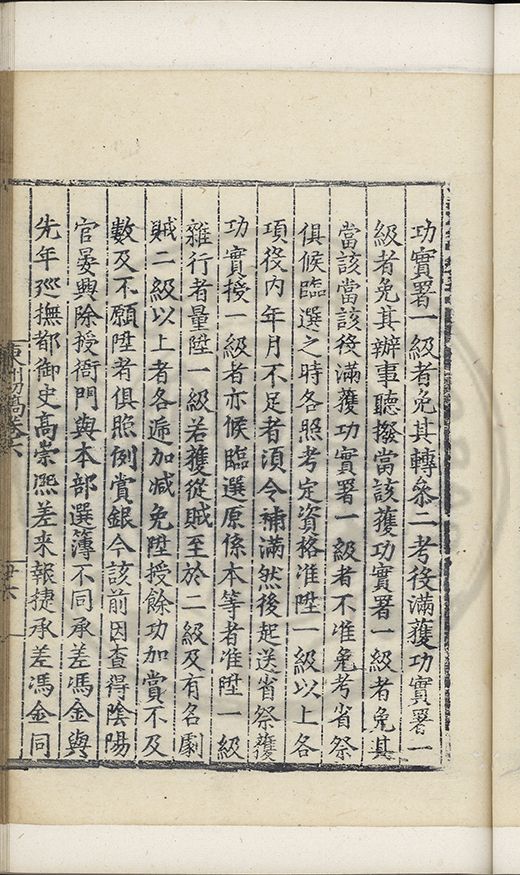 功實署一級者免其轉叅二考後滿獲功實署一
級者免其辦事聽撥當該獲功實署一級者免其
當該當該後滿獲功實署一級者不准免考省祭
俱候臨選之時各照考定資格准陞一級以上各
項役內年月不足者須令補滿然後起送省祭獲
功實授一級者亦候臨選原係本等者准陞一級
雜行者量陞一級若獲從賊至於二級及有名劇
賊二級以上者各遞加減免陞授餘功加賞不及
數及不願陞者俱照例賞銀今該前因查得陰陽
官晏興除授衙門與本部選簿不同承差馮金與
先年廵撫都御史高崇熈差来報捷承差馮金同